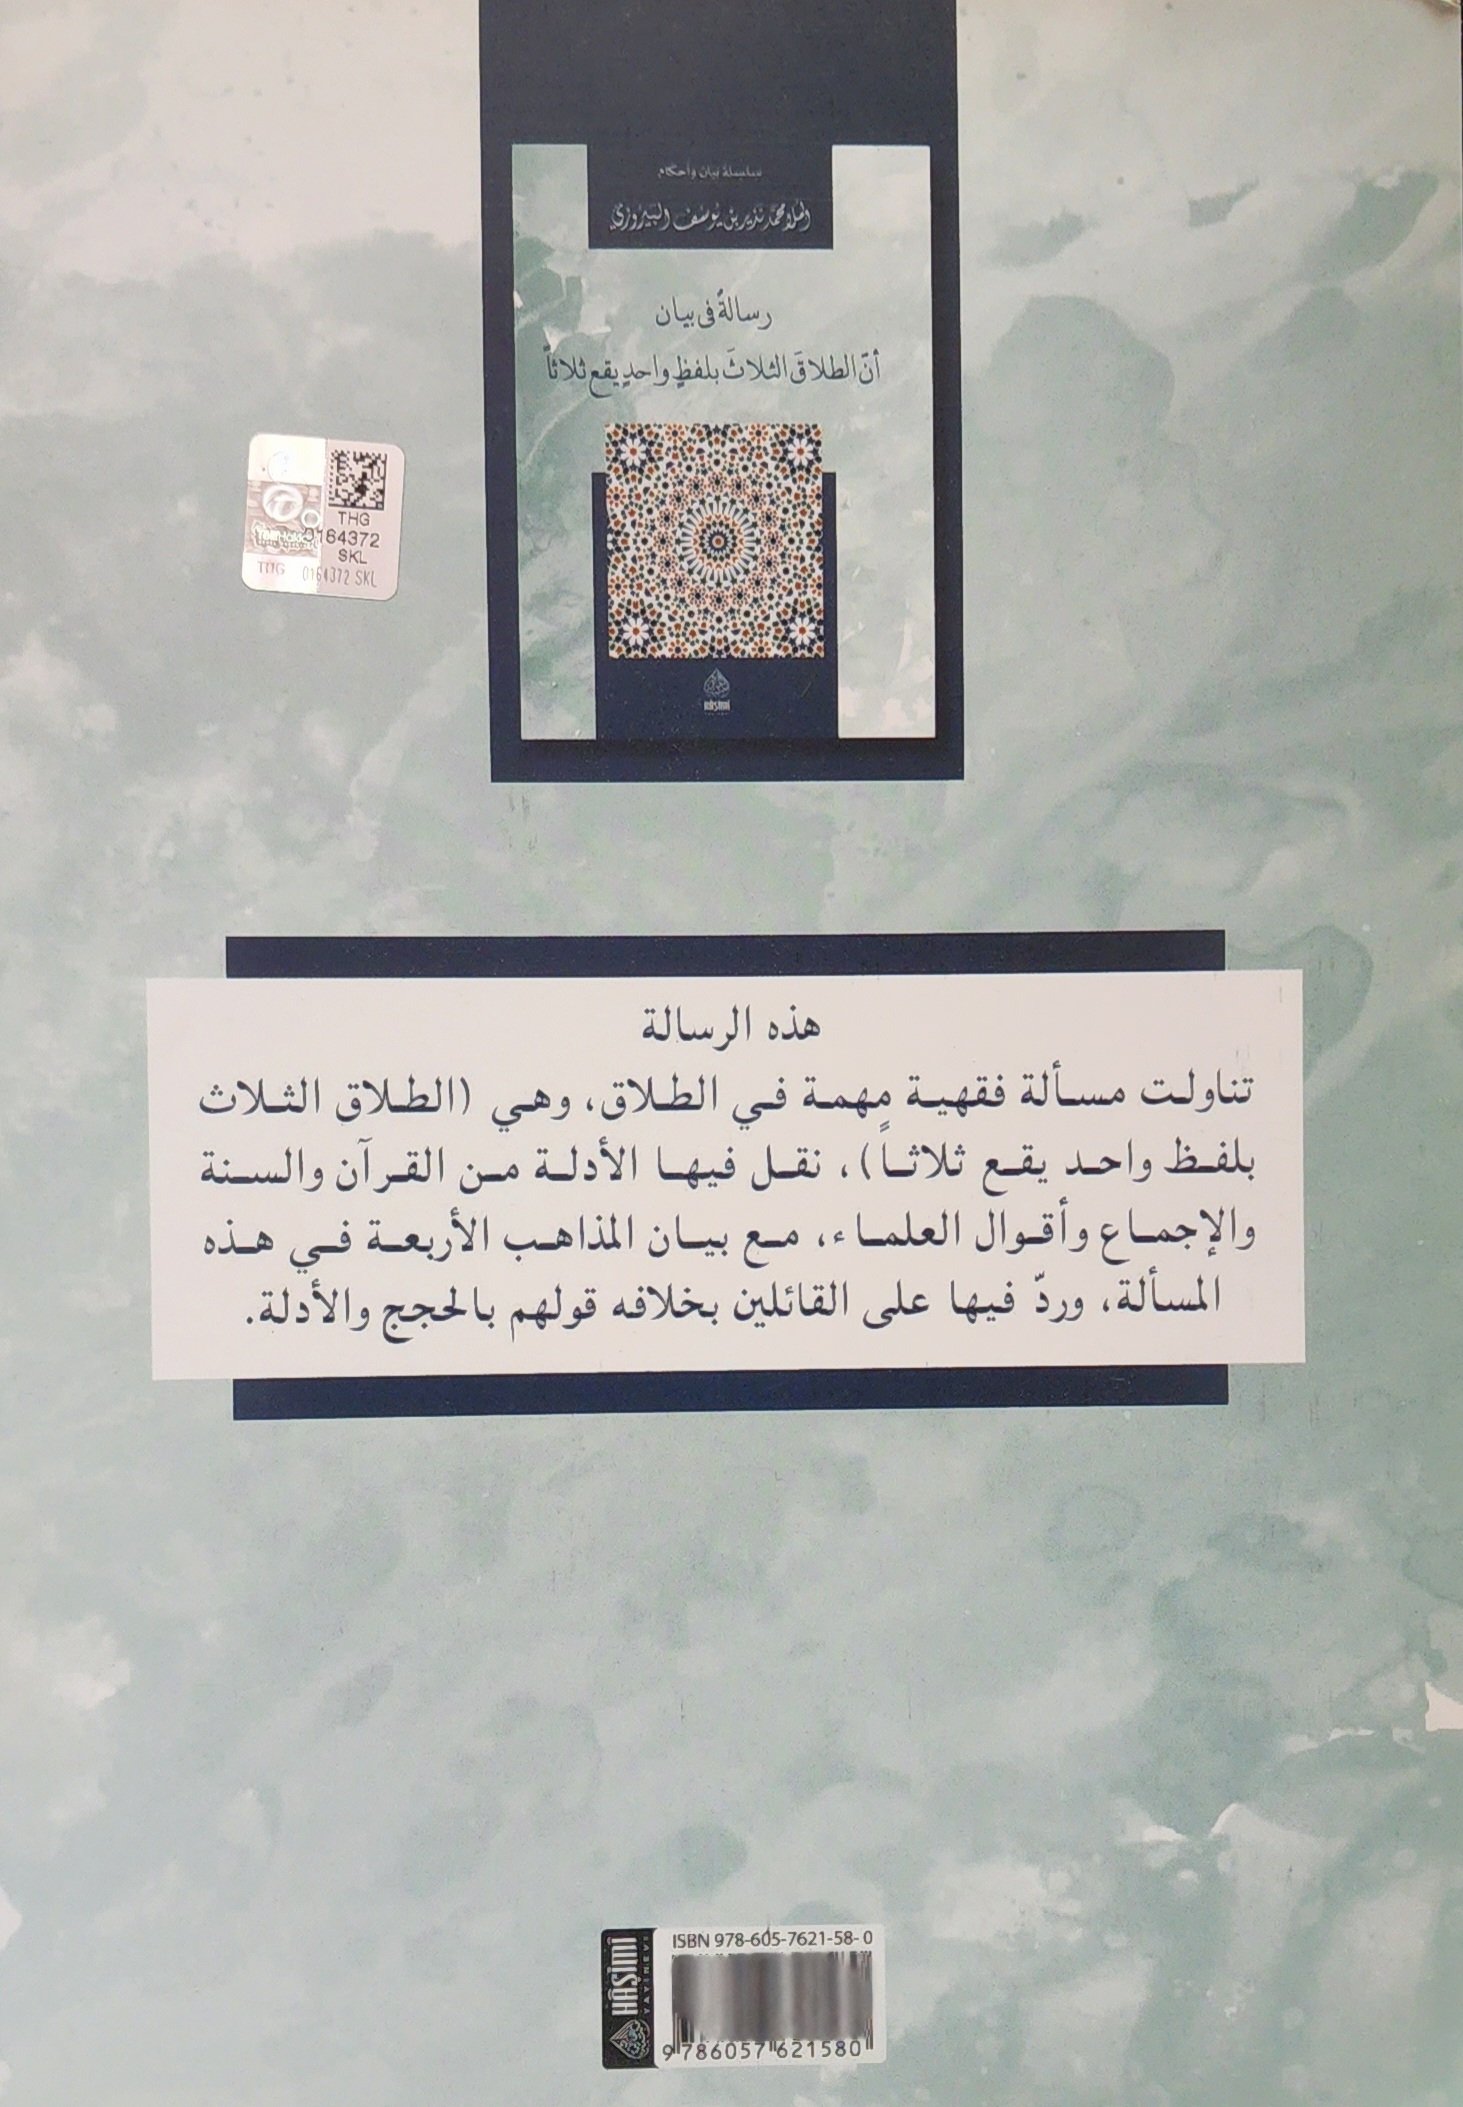 سلسلة بيان وأحكام
الملا محمد نذير بن يوسف البيروزي
رسالةٌ في بيان
أنّ الطلاقَ الثلاثَ بلفظٍ واحدٍ يقع ثلاثاً
HAŞİMİ
THG
0164372
SKL
THG 0164372 SKL
هذه الرسالة
تناولت مسألة فقهية مهمة في الطلاق، وهي (الطلاق الثلاث
بلفظ واحد يقع ثلاثاً)، نقل فيها الأدلة من القرآن والسنة
والإجماع وأقوال العلماء، مع بيان المذاهب الأربعة في هذه
المسألة، وردّ فيها على القائلين بخلافه قولهم بالحجج والأدلة.
ISBN 978-605-7621-58-0
HAŞİMİ
YAYINEVİ
9 786057 621580